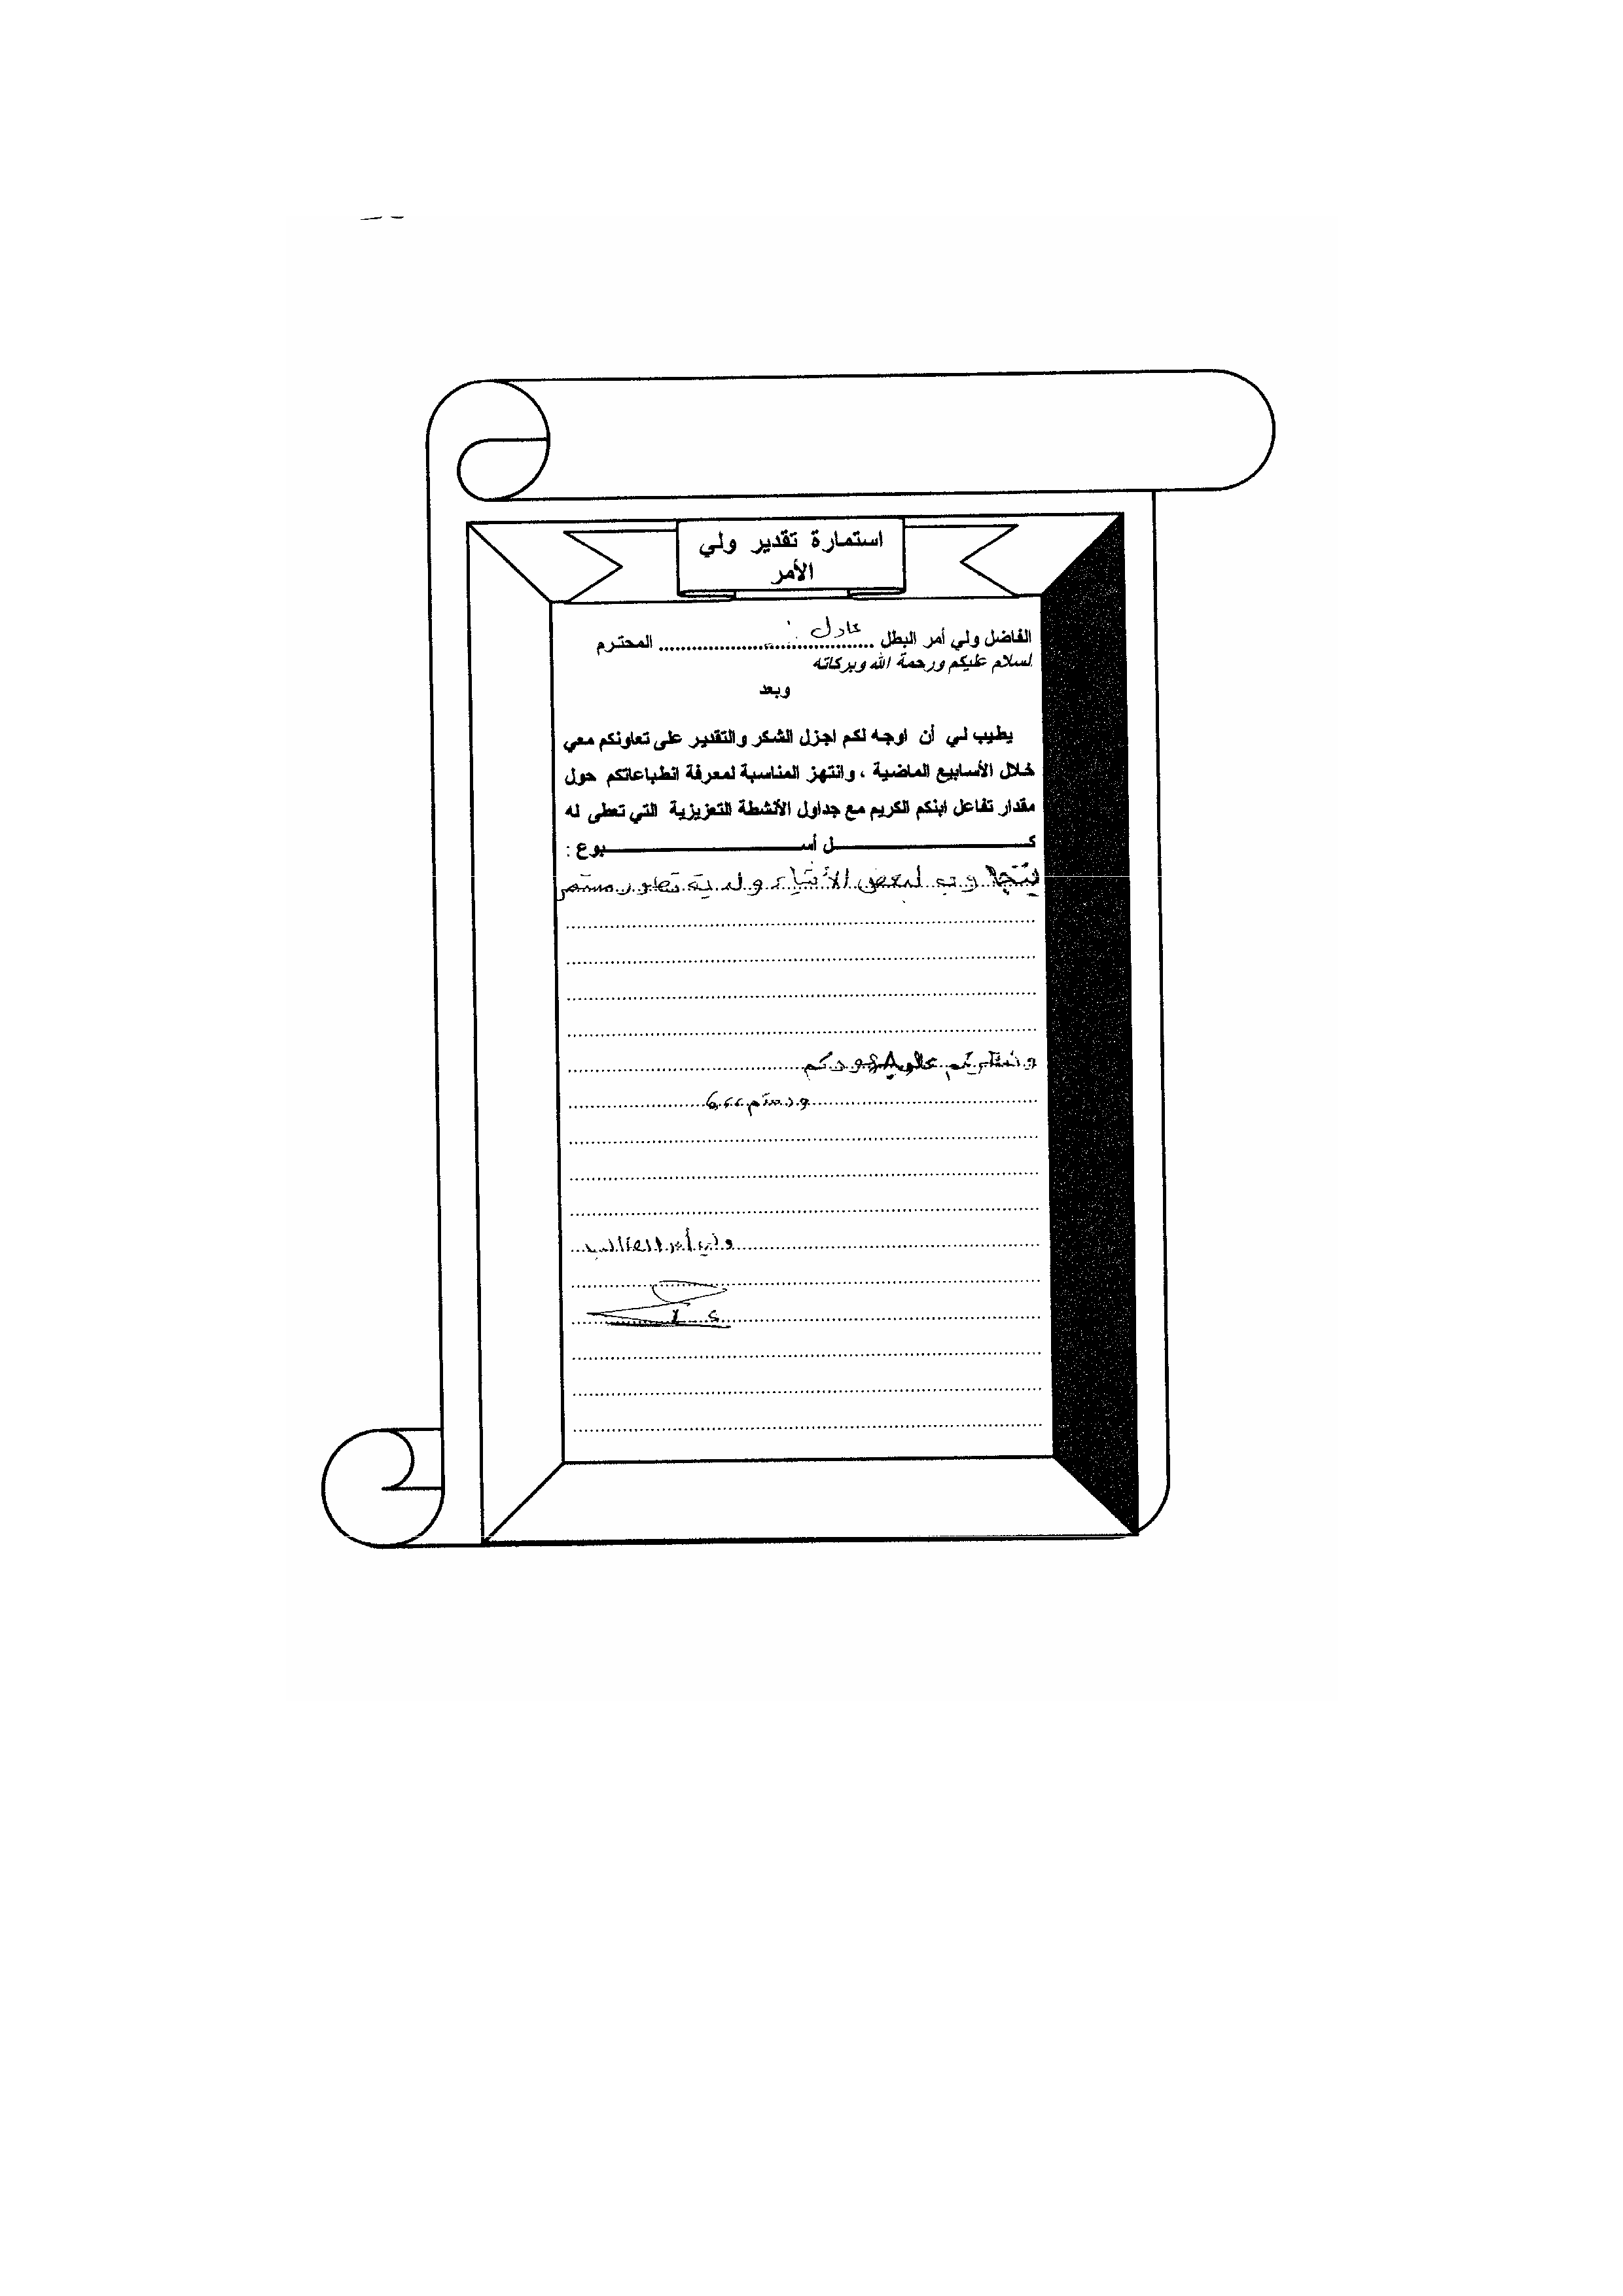 استمارة تقدير ولي
الأمر
الفاضل ولي أمر البطل عادل المحترم
لسلام عليكم ورحمة الله وبركاته
وبعد
يطيب لي أن اوجه لكم اجزل الشكر والتقدير على تعاونكم معي
خلال الأسابيع الماضية ، وانتهز المناسبة لمعرفة انطباعاتكم حول
مقدار تفاعل ابنكم الكريم مع جداول الأنشطة التعزيزية التي تعطى له
كـــل أســـبوع :
يتجاوب لبعض الأشياء ولديه تطور مستمر
ونشكركم على جهودكم
ودمتم ،،،
ولي أمر الطالب